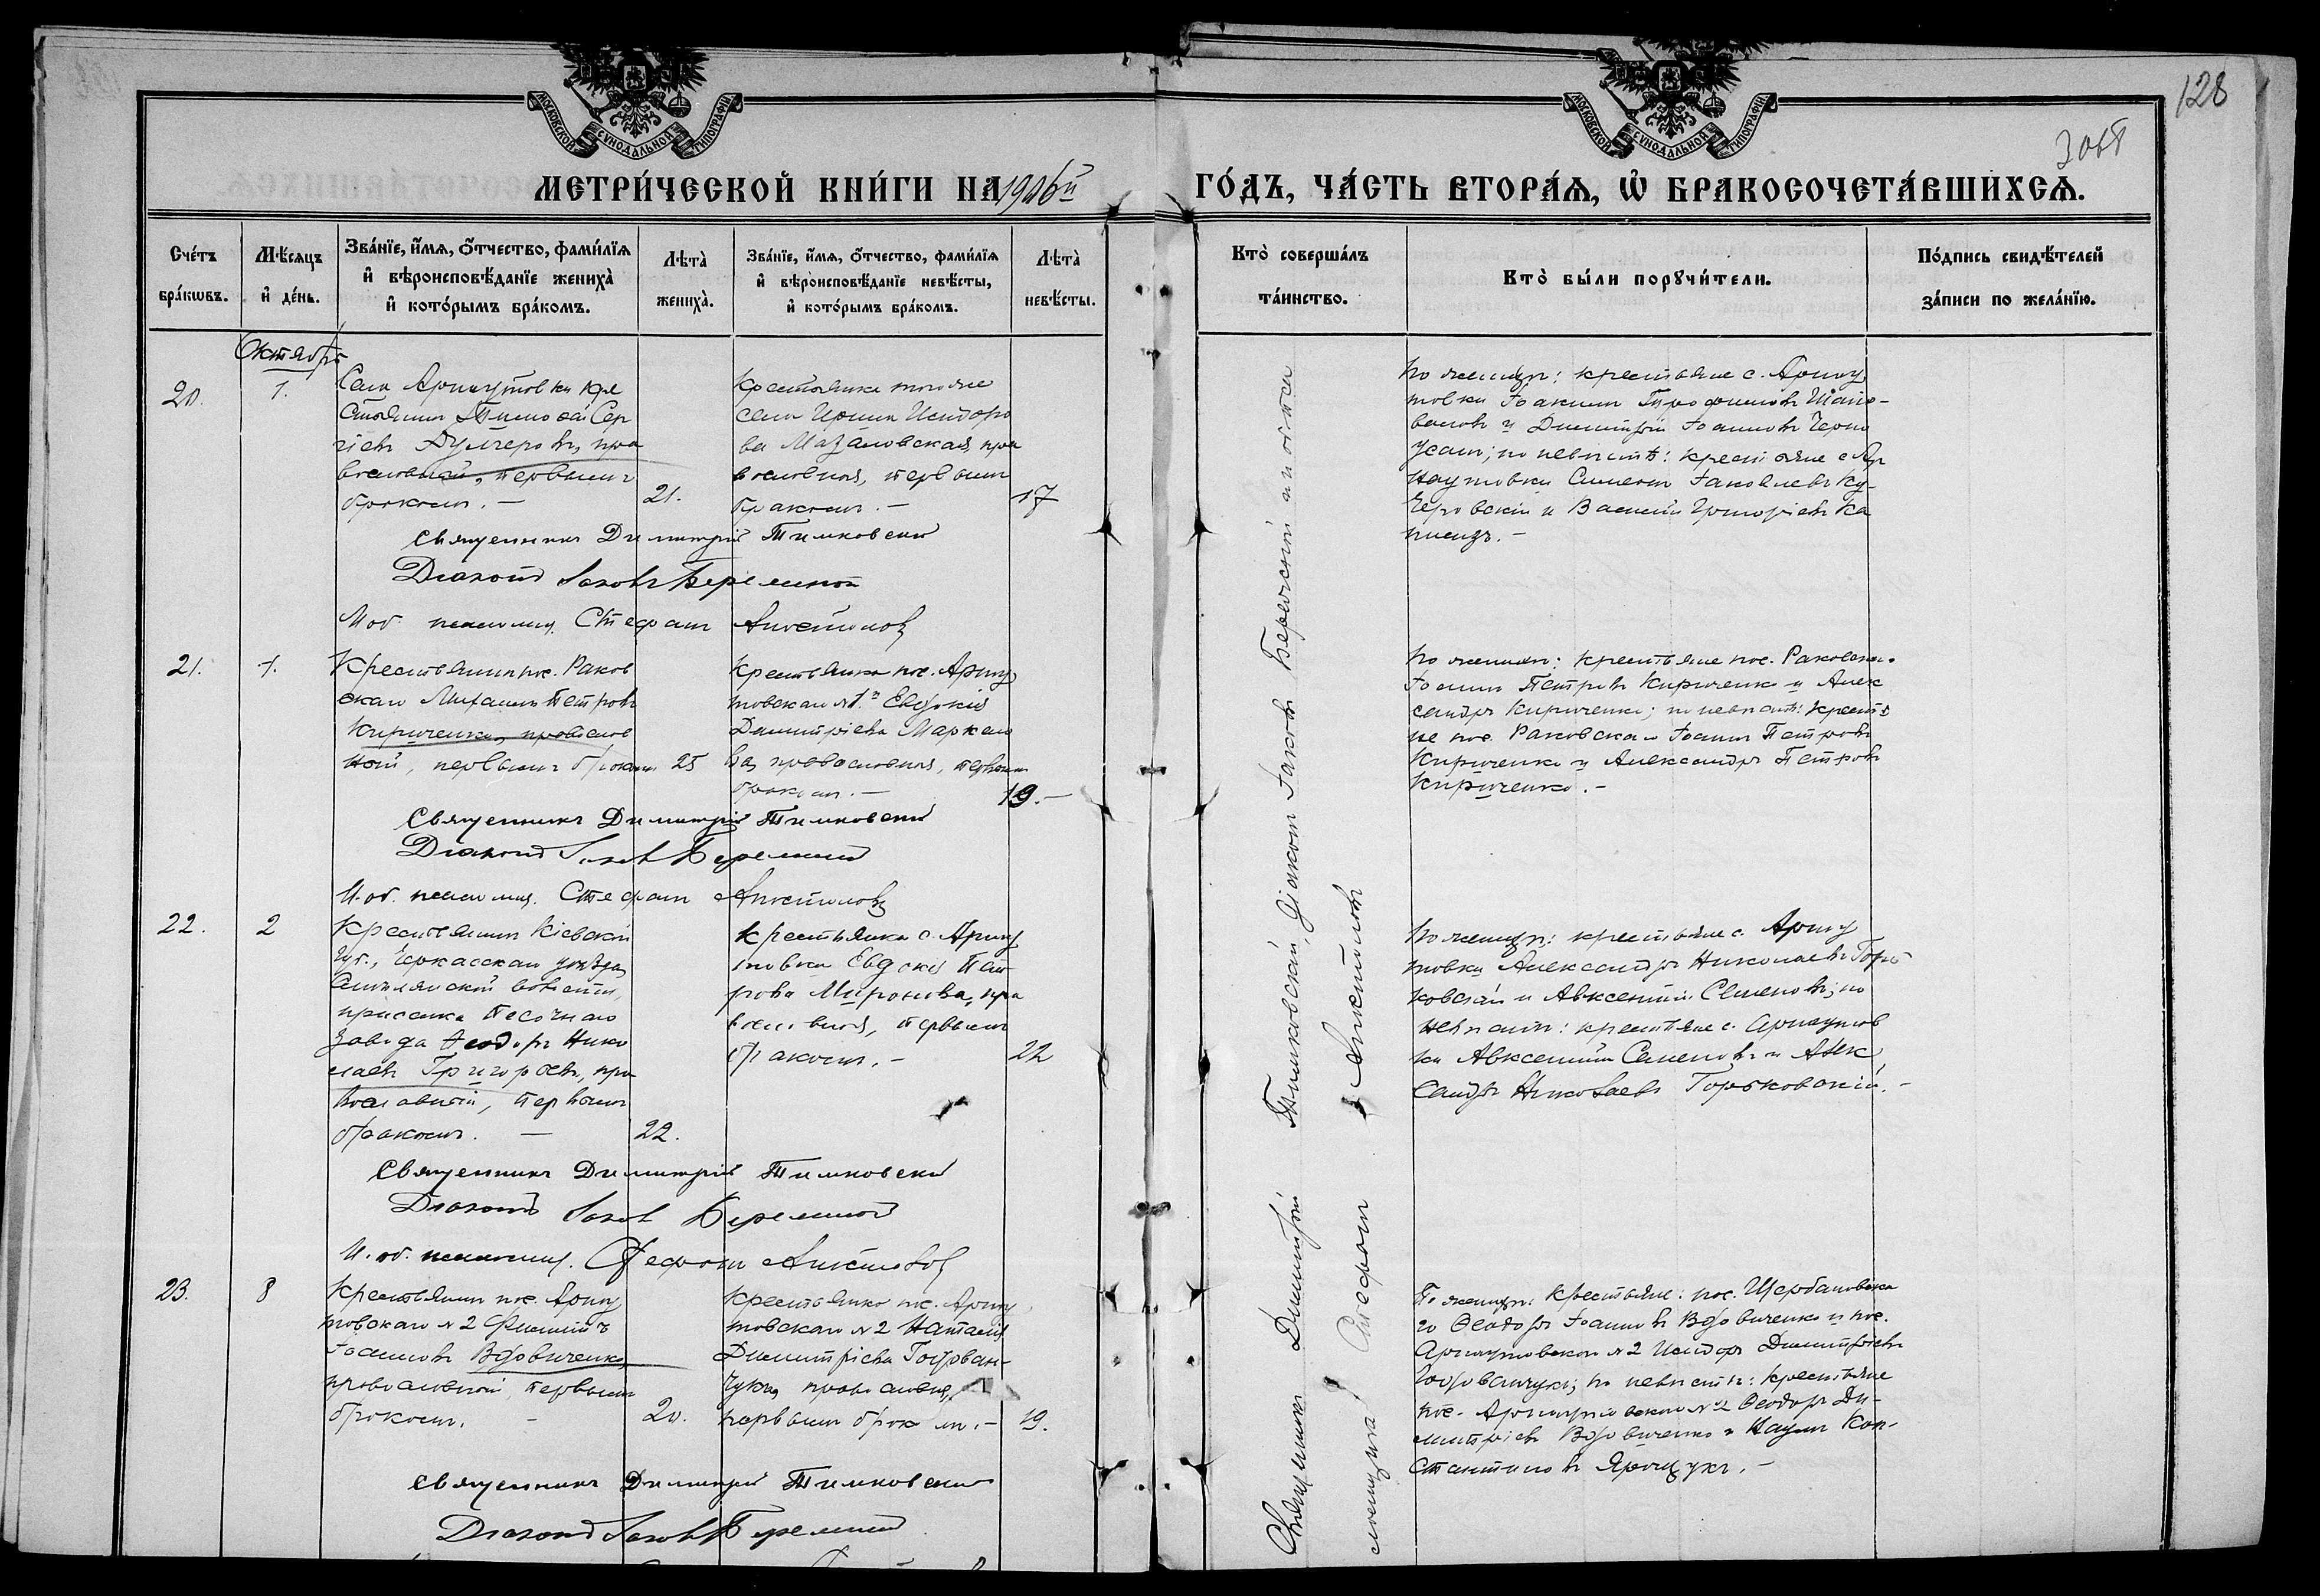 128
3об
МОСКОВСКОЙ СѴНОДАЛЬНОЙ ТИПОГРАФІИ
МОСКОВСКОЙ СѴНОДАЛЬНОЙ ТИПОГРАФІИ
МЕТРИ́ЧЕСКОЙ КНИ́ГИ НА 1906й ГО́ДЪ, ЧА́СТЬ ВТОРА́Я, Ѡ҆ БРАКОСОЧЕТА́ВШИХСЯ.
Сче́тъ бра́кѡвъ.
Мѣ́сяцъ и҆ де́нь.
Зва́нїе, и҆́мя, ѻ҆́тчество, фами́лїя
и҆ вѣроисповѣ́данїе жениха̀
и҆ кото́рымъ бра́комъ.
Лѣта̀ жениха̀.
Зва́нїе, и҆́мя, ѻ҆́тчество, фами́лїя
и҆ вѣроисповѣ́данїе невѣ́сты,
и҆ кото́рымъ бра́комъ.
Лѣта̀ невѣ́сты.
Кто̀ соверша́лъ та́инство.
Кто̀ бы́ли порꙋчи́тели.
По́дпись свидѣ́телей за́писи по жела́нїю.
Октябрь
20.
1.
Села Арнаутовки кре
стьянинъ Тимофей Сер
гіевъ пра
вославный, первымъ
бракомъ. —
21.
Крестьянка тогоже
села Ирина Исидоро
ва Мазановская, пра
вославная, первымъ
бракомъ. —
17
По женихѣ: крестьяне с. Арнау
товки Іоакимъ Трофимовъ Шапо-
валовъ и Димитрій Іоанновъ Черно
усанъ; по невѣстѣ: крестьяне с. Ар
наутовки Симеонъ Іаковлевъ Ку-
черовскій и Василій Григорьевъ Ка
Священникъ Димитрій Тимковскій
Діаконъ Іаковъ
И. об. псаломщ. Стефанъ Анкетиловъ
21.
1.
Крестьянинъ пос. Раков
скаго Михаилъ Петровъ
Кириченко, православ
ный, первымъ бракомъ
25
Крестьянка пос. Арнау
товскаго №1й Евдокія
Димитріева Маркело
ва, православная, первымъ
бракомъ. —
19. —
По женихѣ: крестьяне пос. Раковскаго
Іоаннъ Петровъ Кириченко и Алек
сандръ Кириченко; по невѣстѣ: крестья
не пос. Раковскаго Іоаннъ Петровъ
Кириченко и Александръ Петровъ
Кириченко. —
Священникъ Димитрій Тимковскій
Діаконъ Іаковъ
И. об. псаломщ. Стефанъ Анкетиловъ
22.
2
Крестьянинъ Кіевской
губ., Черкасскаго уѣзда,
Смѣлянской волости,
приселка Песочнаго
завода Ѳеодоръ Нико
лаевъ Григорьевъ, пра
вославный, первымъ
бракомъ. —
22.
Крестьянка с. Арнау
товки Евдокія Пет
рова Миронова, пра
вославная, первымъ
бракомъ. —
22
По женихѣ: крестьяне с. Арнау
товки Александръ Николаевъ Горь
ковскій и Авксентій Семеновъ; по
невѣстѣ: крестьяне с. Арнаутов
ки Авксентій Семеновъ и Алек
сандръ Николаевъ Горьковскій. —
Священникъ Димитрій Тимковскій
Діаконъ Іаковъ
И. об. псаломщ. Стефанъ Анкетиловъ
23.
8
Крестьянинъ пос. Арнау
товскаго №2 Филиппъ
Іоанновъ Вдовиченко,
православный, первымъ
бракомъ. —
20.
Крестьянка пос. Арнау
товскаго №2 Наталія
Димитріева Голован-
чукъ, православная,
первымъ бракомъ. —
19.
По женихѣ: крестьяне: пос. Щербановска
го Ѳеодоръ Іоанновъ Вдовиченко и пос.
Арнаутовскаго №2 Исидоръ Димитріевъ
Голованчукъ; по невѣстѣ: крестьяне
пос. Арнаутовскаго №2 Ѳеодоръ Ди-
митріевъ Вдовиченко и Наумъ Кон-
стантиновъ Ярощукъ. —
Священникъ Димитрій Тимковскій
Діаконъ Іаковъ
Священникъ Димитрій Тимковскій, діаконъ Іаковъ и об. пса
ломщика Стефанъ Анкетиловъ